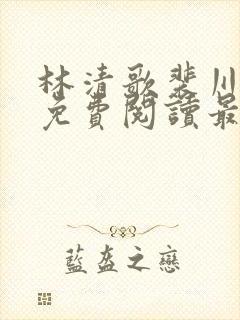 林清歌裴川
免費閱讀最
藍盔之戀